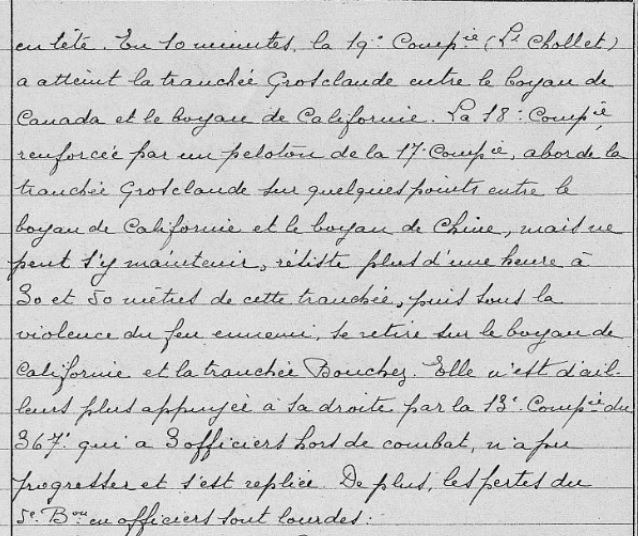 en tête. En 10 minutes, la 19e Compie (Lt Chollet)
a atteint la tranchée Grosclaude entre le boyau de
Canada et le boyau de Californie. La 18e Compie,
renforcée par un peloton de la 17e Compie, aborde la
tranchée Grosclaude sur quelques points entre le
boyau de Californie et le boyau de Chine, mais ne
peut s'y maintenir, résiste plus d'une heure à
30 et 50 mètres de cette tranchée, puis sous la
violence du feu ennemi, se retire sur le boyau de
Californie et la tranchée Bouchez. Elle n'est d'ail-
leurs plus appuyée à sa droite par la 13e Compie du
367e qui a 3 officiers hors de combat, n'a pu
progresser et s'est repliée. De plus, les pertes du
5e Bon en officiers sont lourdes: